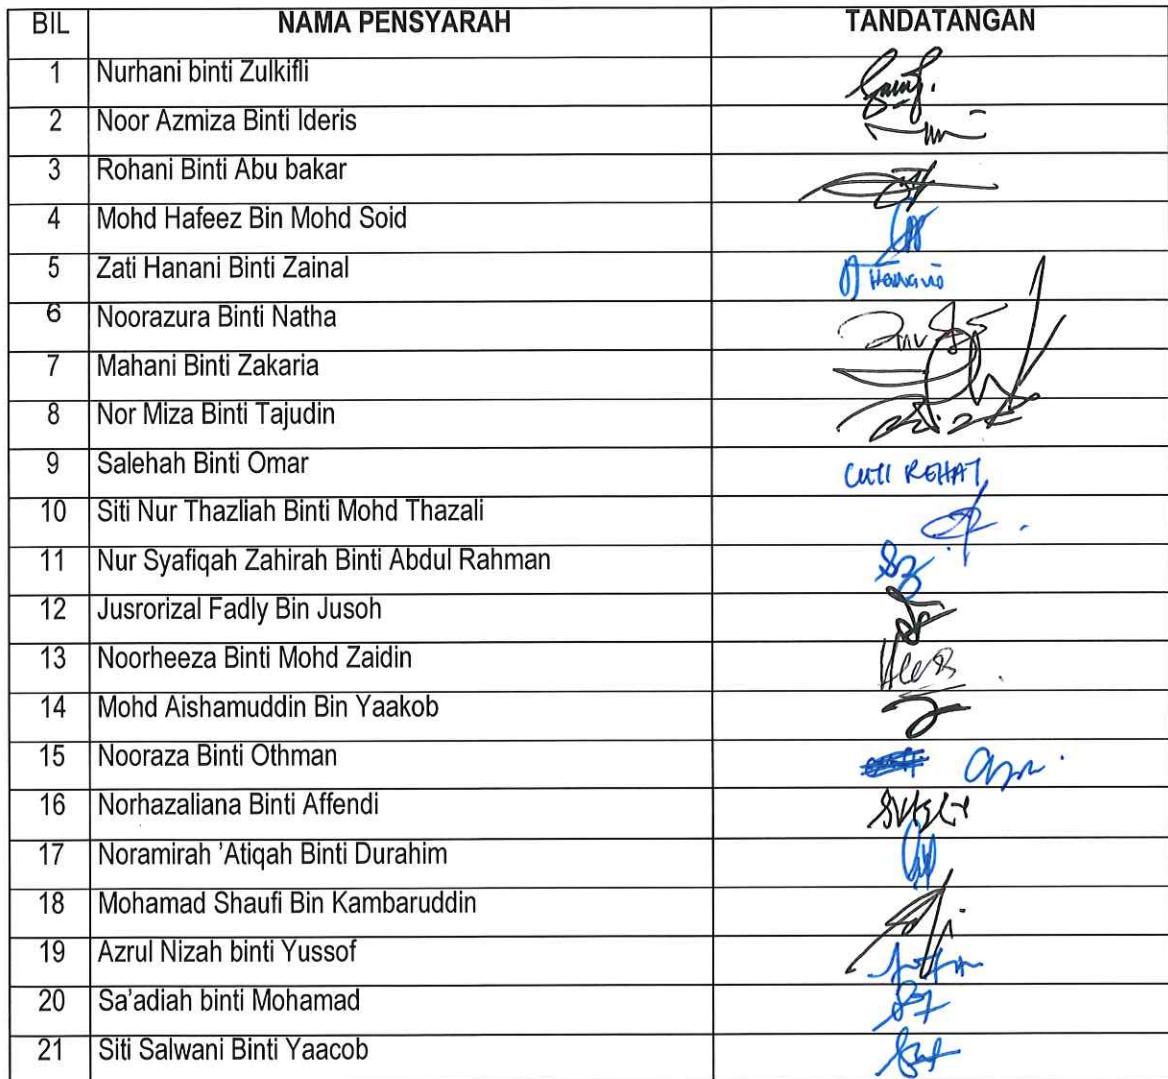 BIL NAMA PENSYARAH TANDATANGAN
1 Nurhani binti Zulkifli
2 Noor Azmiza Binti Ideris
3 Rohani Binti Abu bakar
4 Mohd Hafeez Bin Mohd Soid
5 Zati Hanani Binti Zainal
6 Noorazura Binti Natha
7 Mahani Binti Zakaria
8 Nor Miza Binti Tajudin
9 Salehah Binti Omar CUTI REHAT
10 Siti Nur Thazliah Binti Mohd Thazali
11 Nur Syafiqah Zahirah Binti Abdul Rahman
12 Jusrorizal Fadly Bin Jusoh
13 Noorheeza Binti Mohd Zaidin
14 Mohd Aishamuddin Bin Yaakob
15 Nooraza Binti Othman
16 Norhazaliana Binti Affendi
17 Noramirah 'Atiqah Binti Durahim
18 Mohamad Shaufi Bin Kambaruddin
19 Azrul Nizah binti Yussof
20 Sa'adiah binti Mohamad
21 Siti Salwani Binti Yaacob